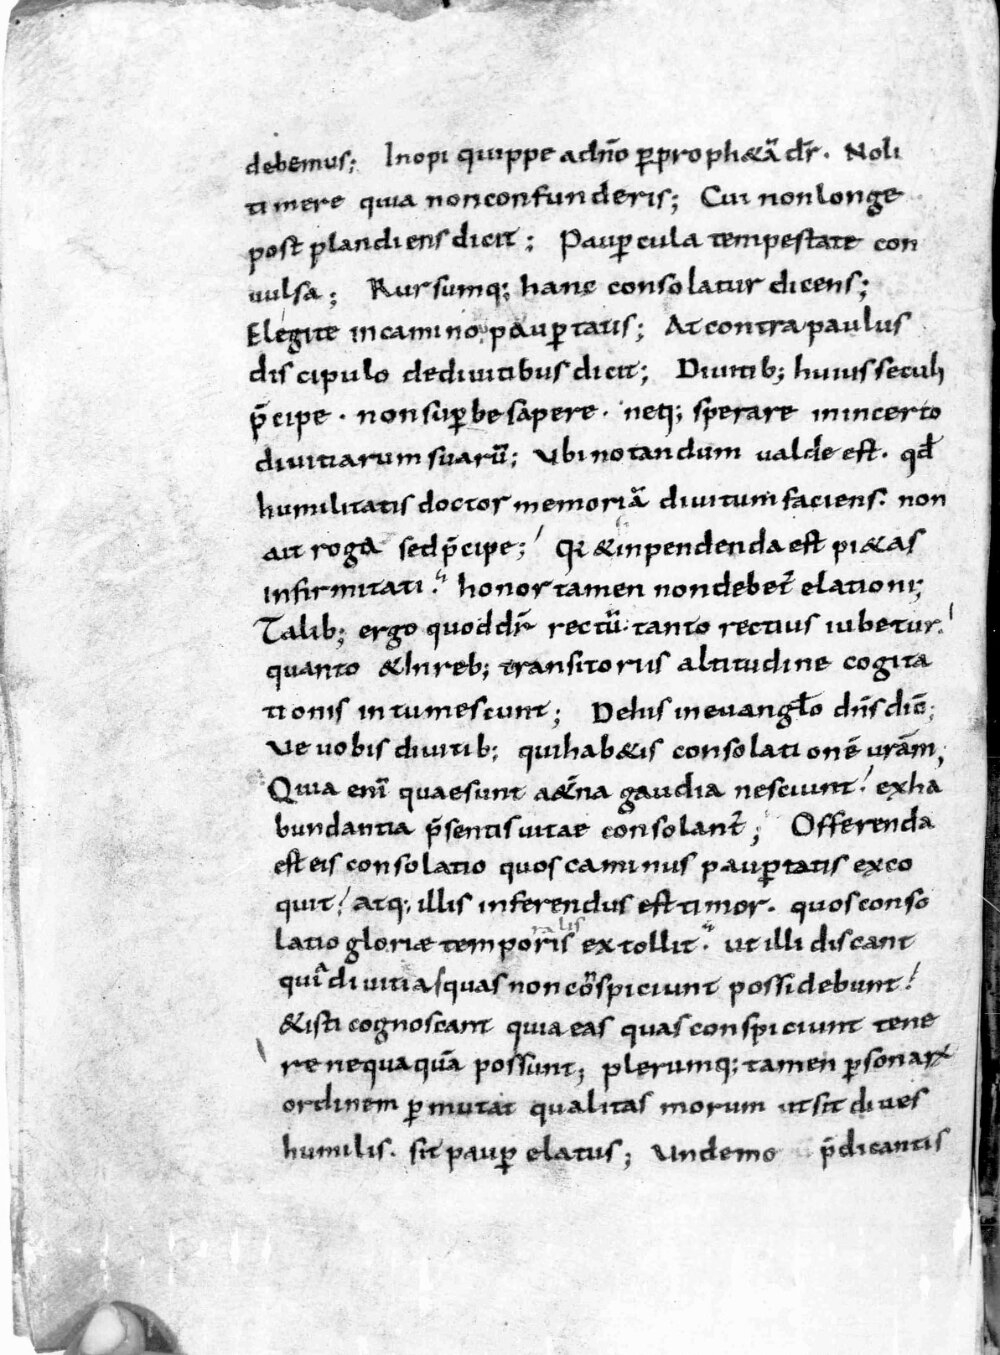 debemus; Inopi quippe adnō ꝑprophetā dr̄. Noli
timere quia nonconfunderis; Cui nonlonge
post plandiens dicit; Pauꝑcula tempestate con
uulsa; Rursumq; hanc consolatur dicens;
Elegite incamino pauꝑtatis; At contra paulus
discipulo dediuitibus dicit; Diuitib; huius seculi
p̄cipe. non suꝑbe sapere. neq; sperare inincerto
diuitiarum suarū; Ubi notandum ualde est. qđ
humilitatis doctor memoriā diuitum faciens. non
ait roga sed p̄cipe; Q̇ &inpendenda est pi&as
infirmitati. honor tamen nondebet̄ elationi;
Talib; ergo quod dr̄ rectū. tanto rectius iubetur.
quanto &Inreb; transitoriis altitudine cogita
tionis intumescunt; Dehis in euangłо dn̄s dic̄;
Ve uobis diuitib; quihab&is consolationē ur̄am;
Quia eni̅ quae sunt a&n̄a gaudia nesciunt. exha
bundantia p̄sentis uitae consolant̄; Offerenda
est eis consolatio quos caminus pauꝑtatis exco
quit. atq; illis inferendus est timor. quos conso
ralis
latio gloriæ temporis extollit. ut illi discant
quiā diuitias quas non cōspiciunt possidebunt.
&isti cognoscant quia eas quas conspiciunt tene
re nequaquā possunt; plerumq; tamen ꝑsonaꝝ
ordinem ꝑmutat qualitas morum ut sit diues
humilis. sit pauꝑ elatus; Undemo p̄dicantis